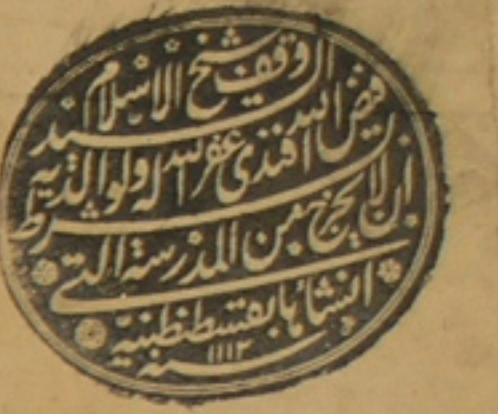 وقف شيخ الاسلام السيد
فيض الله افندى غفر الله له ولوالديه
بشرط ان لا يخرج من المدرسة التي
انشأها بقسطنطنية
سنه ١١١٢